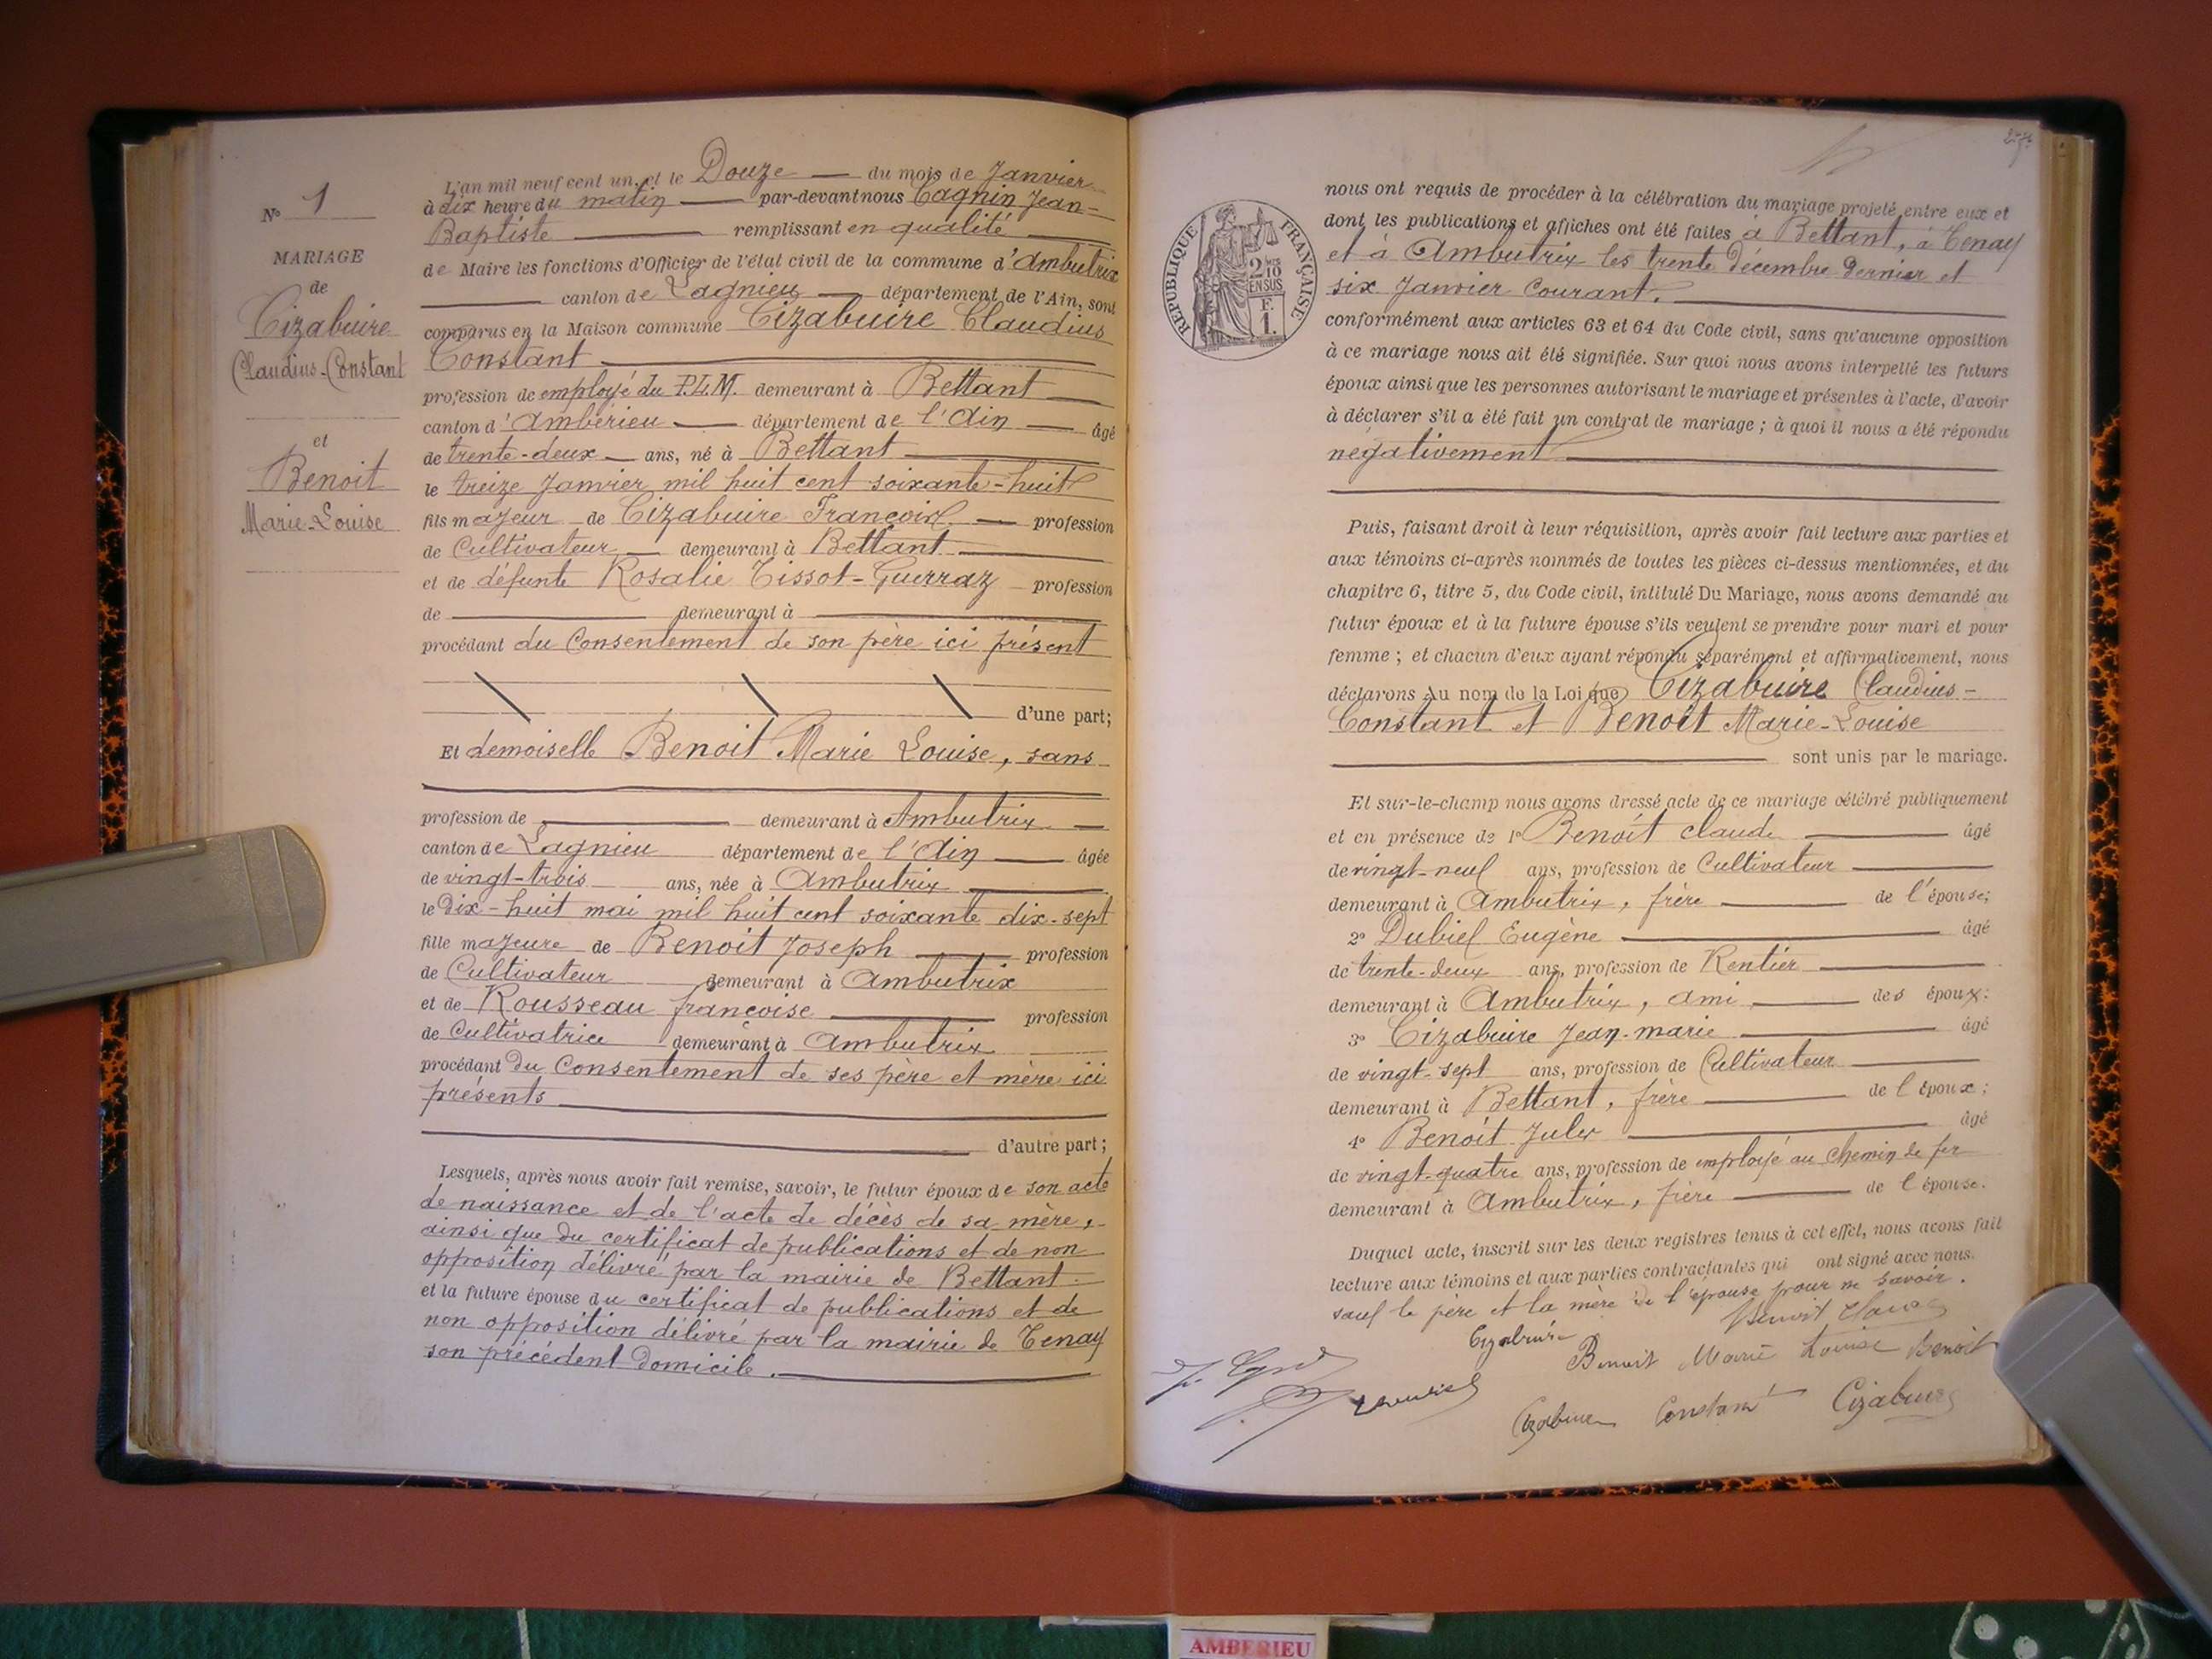 N° 1
MARIAGE
de
Cizabuire
Claudius-Constant
et
Benoit
Marie-Louise
L'an mil neuf cent un, et le Douze du mois de Janvier
à dix heure du matin par-devant nous Cagnin Jean-
Baptiste remplissant en qualité
de Maire les fonctions d'Officier de l'état civil de la commune d'Ambutrix
canton de Lagnieu département de l'Ain, sont
comparus en la Maison commune Cizabuire Claudius
Constant
profession de employé du P.L.M. demeurant à Bettant
canton d'Ambérieu département de l'Ain âgé
de trente-deux ans, né à Bettant
le treize Janvier mil huit cent soixante-huit
fils majeur de Cizabuire François profession
de Cultivateur demeurant à Bettant
et de défunte Rosalie Tissot-Guerraz profession
de demeurant à
procédant du Consentement de son père ici présent
d'une part;
Et demoiselle Benoit Marie Louise, sans
profession de demeurant à Ambutrix
canton de Lagnieu département de l'Ain âgée
de vingt-trois ans, née à Ambutrix
le Dix-huit mai mil huit cent soixante dix-sept
fille majeure de Benoit Joseph profession
de Cultivateur demeurant à Ambutrix
et de Rousseau françoise profession
de Cultivatrice demeurant à Ambutrix
procédant Du Consentement de ses père et mère ici
présents
d'autre part;
Lesquels, après nous avoir fait remise, savoir, le futur époux de son acte
de naissance et de l'acte de décès de sa mère,
ainsi que du certificat de publications et de non
opposition délivré par la mairie de Bettant
et la future épouse du certificat de publications et de
non opposition délivré par la mairie de Tenay
son précédent Domicile.
RÉPUBLIQUE FRANÇAISE
2/10 EN SUS
F.
1.
nous ont requis de procéder à la célébration du mariage projeté entre eux et
dont les publications et affiches ont été faites à Bettant, à Tenay
et à Ambutrix les trente Décembre Dernier et
six Janvier Courant.
conformément aux articles 63 et 64 du Code civil, sans qu'aucune opposition
à ce mariage nous ait été signifiée. Sur quoi nous avons interpellé les futurs
époux ainsi que les personnes autorisant le mariage et présentes à l'acte, d'avoir
à déclarer s'il a été fait un contrat de mariage; à quoi il nous a été répondu
négativement
Puis, faisant droit à leur réquisition, après avoir fait lecture aux parties et
aux témoins ci-après nommés de toutes les pièces ci-dessus mentionnées, et du
chapitre 6, titre 5, du Code civil, intitulé Du Mariage, nous avons demandé au
futur époux et à la future épouse s'ils veulent se prendre pour mari et pour
femme; et chacun d'eux ayant répondu séparément et affirmativement, nous
déclarons Au nom de la Loi que Cizabuire Claudius-
Constant et Benoit Marie-Louise
sont unis par le mariage.
Et sur-le-champ nous avons dressé acte de ce mariage célébré publiquement
et en présence de 1° Benoit Claude âgé
de vingt-neuf ans, profession de Cultivateur
demeurant à Ambutrix, frère de l'épouse;
2° Dubiel Eugène âgé
de trente-deux ans, profession de Rentier
demeurant à Ambutrix, ami des époux;
3° Cizabuire Jean-marie âgé
de vingt-sept ans, profession de Cultivateur
demeurant à Bettant, frère de l'époux;
4° Benoit Jules âgé
de vingt-quatre ans, profession de employé au chemin de fer
demeurant à Ambutrix, frère de l'épouse.
Duquel acte, inscrit sur les deux registres tenus à cet effet, nous avons fait
lecture aux témoins et aux parties contractantes qui ont signé avec nous.
sauf le père et la mère de l'épouse pour ne savoir.
Benoit Claude
Cizabuire
Benoit Marie Louise Benoit
Cizabuire Constant Cizabuire
AMBERIEU